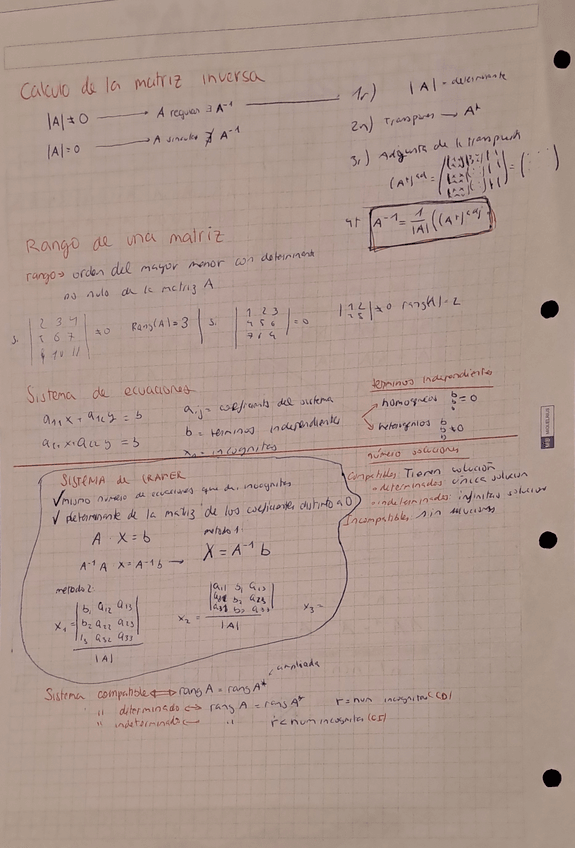 Calculo de la matriz inversa
|A| ≠ 0 → A regular ∃ A⁻¹
|A| = 0 → A singular ∄ A⁻¹
|A| = determinante
→ Aᵗ
3º) Adjunta de la transpuesta
(Aᵗ)ᵃᵈʲ =
A⁻¹ = 1/|A| ((Aᵗ)ᵃᵈʲ)
Rango de una matriz
rango → orden del mayor menor con determinante
no nulo de la matriz A
≠0 Rang(A)=3
1 2 3
= 0
≠0 rang(A)=2
Sistema de ecuaciones
a₁₁x + a₁₂y = b
= b
aᵢⱼ = coeficiente del sistema
b = terminos independientes
= incognitas
terminos independientes
homogeneos b = 0
≠0
número soluciones
Compatibles: Tienen solución
determinados única solución
indeterminados infinitas
Incompatibles sin soluciones
SISTEMA de CRAMER
✓ mismo número de ecuaciones que de incognitas
✓ determinante de la matriz de los coeficientes distinto a 0
A · X = b
A⁻¹ A X = A⁻¹ b →
metodo 1:
X = A⁻¹ b
metodo 2:
b₁ a₁₂ a₁₃
x₁ = b₂ a₂₂ a₂₃
a₃₂ a₃₃
|A|
a₁₁ b₁ a₁₃
x₂ = b₂ a₂₃
|A|
x₃ =
ampliada
Sistema compatible ↔ rang A = rang A*
" determinado ↔ rang A = rang A* r = num incognitas (CD)
" indeterminado ↔ " r < num incognitas (CI)